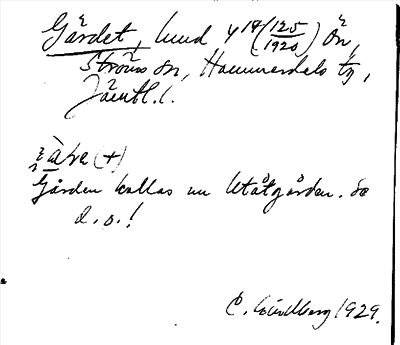 Gärdet, hmd y 14 (125/1920) Ön,
Ströms sn, Hammerdals tg,
Jämtl. l.
(+)
Gården kallas nu Utåtgården. Se
d. o.!
C. Lindberg 1929.